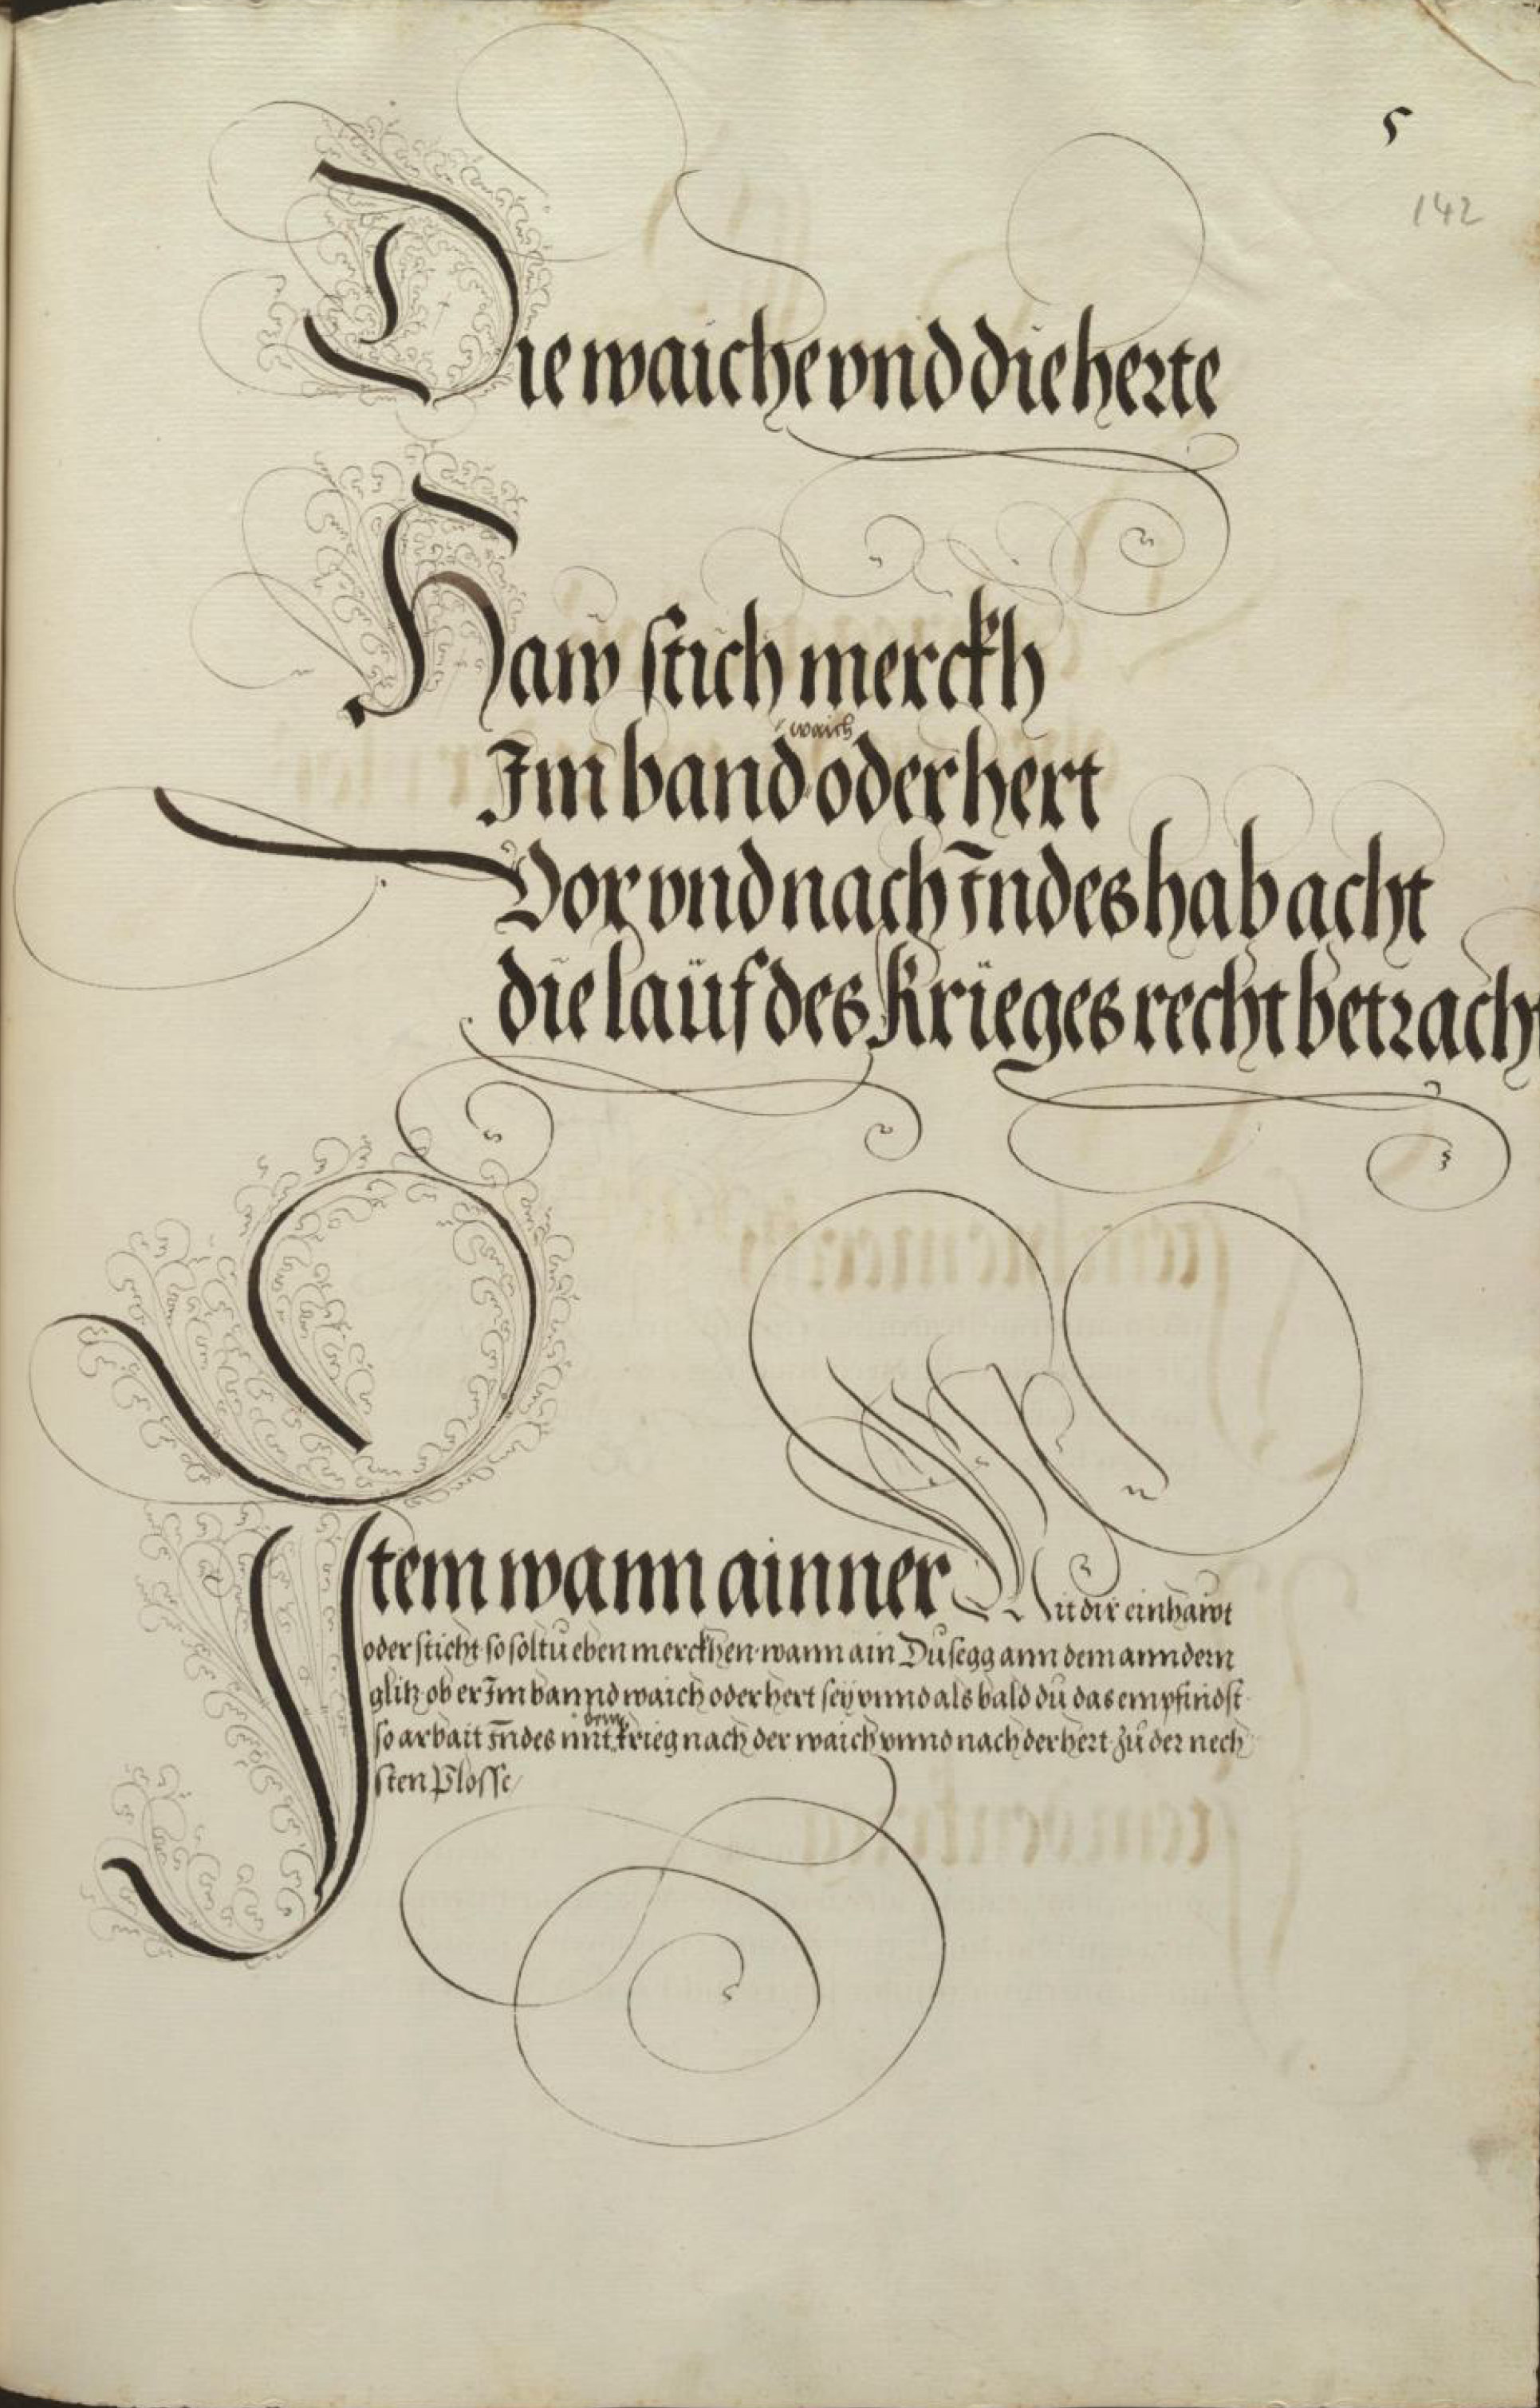 5
142
Die waiche vnnd die herte
Haw stich merckh
waich
Im band oder hert
Vor vnnd nach Indes hab acht
die laüf des Krieges recht betracht
Item wann ainner Mit dir einhawt
oder sticht so soltu eben merckhen wann ain Dusegg ann dem anndern
glitz ob er Im bannd waich oder hert seÿ vnnd als bald dú das empfindst
dem
so arbait Indes mit krieg nach der waich vnnd nach der hert zú der nech
sten Plosse